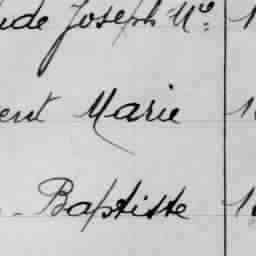 ude Joseph Me: 1
ent Marie 1
- Baptiste 1